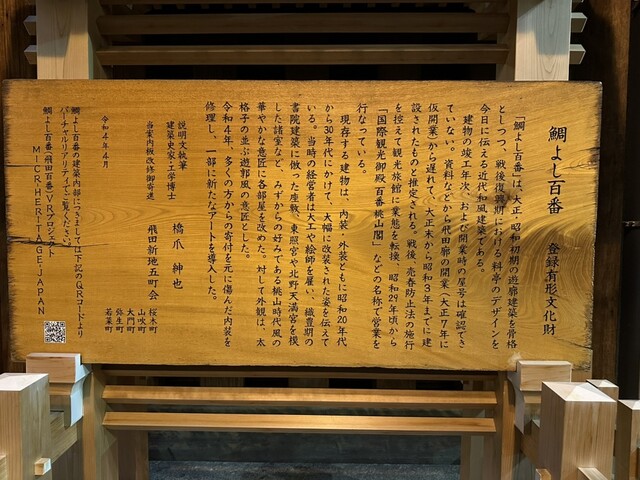 鯛よし百番 登録有形文化財
「鯛よし百番」は、大正・昭和初期の遊廓建築を骨格
としつつ、戦後復興期における料亭のデザインを、
今日に伝える近代和風建築である。
建物の竣工年次、および開業時の屋号は確認でき
ていない。資料などから飛田廓の開業(大正7年に
仮開業)から遅れて、大正末から昭和3年までに建
設されたものと推定される。戦後、売春防止法の施行
を控えて観光旅館に業態を転換、昭和29年頃から
「国際観光御殿 百番桃山閣」などの名称で営業を
行なっている。
現存する建物は、内装・外装ともに昭和20年代
から30年代にかけて、大幅に改装された姿を伝えて
いる。当時の経営者は大工や絵師を雇い、織豊期の
書院建築に倣った座敷、東照宮や北野天満宮を模
した諸室など、みずからの好みである桃山時代風の
華やかな意匠に各部屋を改めた。対して外観は、太
格子の並ぶ遊郭風の意匠とした。
令和4年、多くの方からの寄付を元に傷んだ内装を
修理し、一部に新たなアートを導入した。
説明文執筆
建築史家・工学博士 橋爪 紳也
当案内板改修御寄進 飛田新地五町会
桜木町
山吹町
大門町
弥生町
若菜町
令和4年4月
鯛よし百番の建築内部につきましては下記のQRコードより
バーチャルリアリティでご覧ください。
鯛よし百番(飛田百番)VRプロジェクト
MICR.HERITAGE.JAPAN